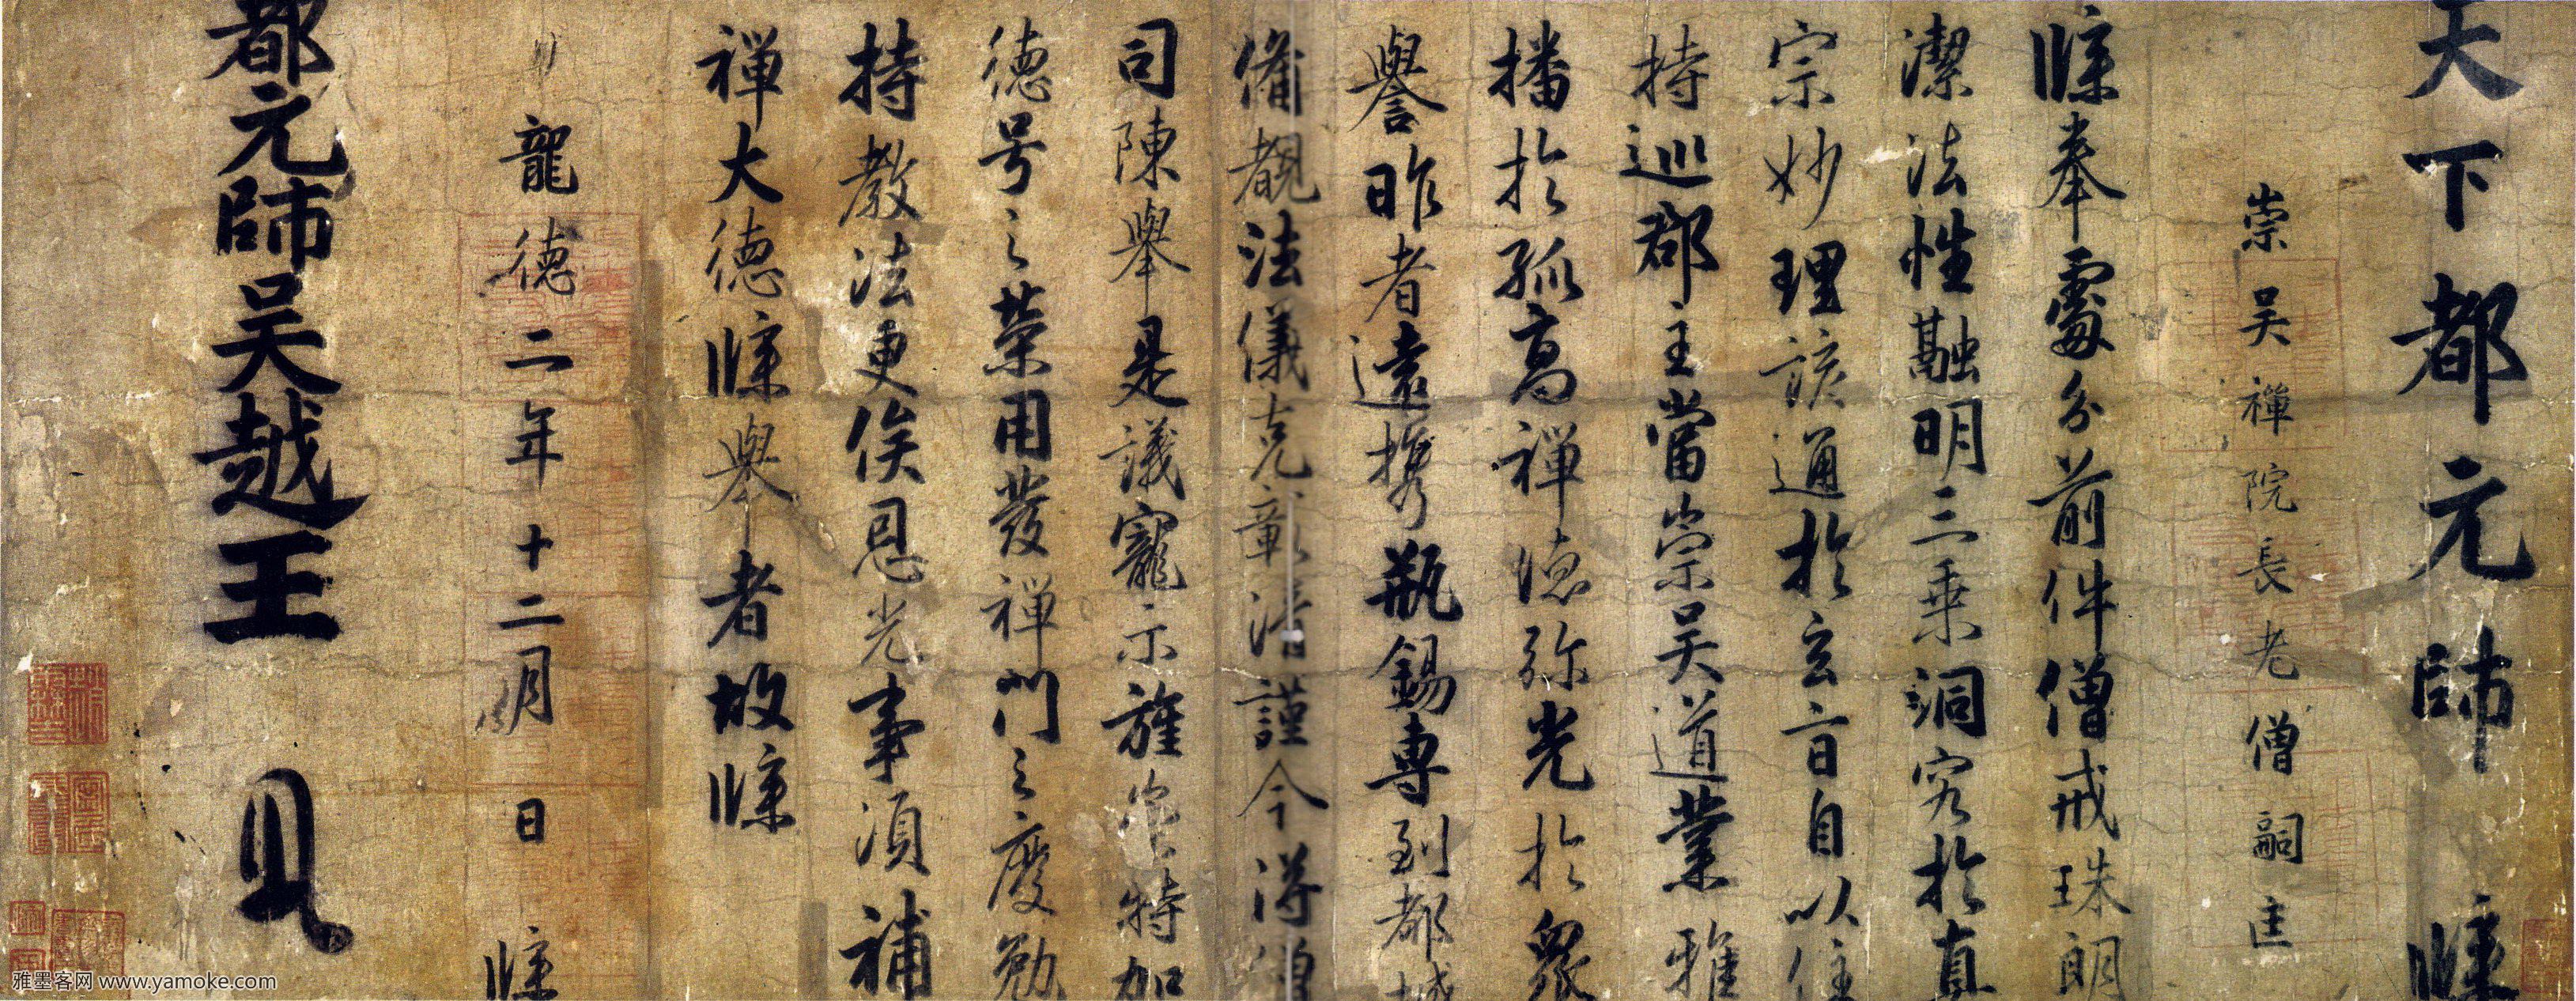 天下都元帥 牒
崇吴禪院長老僧嗣匡
牒奉處分前件僧戒珠朗
潔法性融明三乘洞究於真
宗妙理該通於玄旨自以住
持巡郡主當崇吴道業雅
播於孤高禪德弥光於衆
譽昨者遠携瓶錫專到都城
備覩法儀克彰清謹今得僧
司陳舉是議寵示旌賞特加
德号之榮用發禪門之慶勉
持教法更俟恩光事須補
禪大德牒舉者故牒
龍德二年十二月 日 牒
都元帥吴越王
雅墨客网 www.yamoke.com